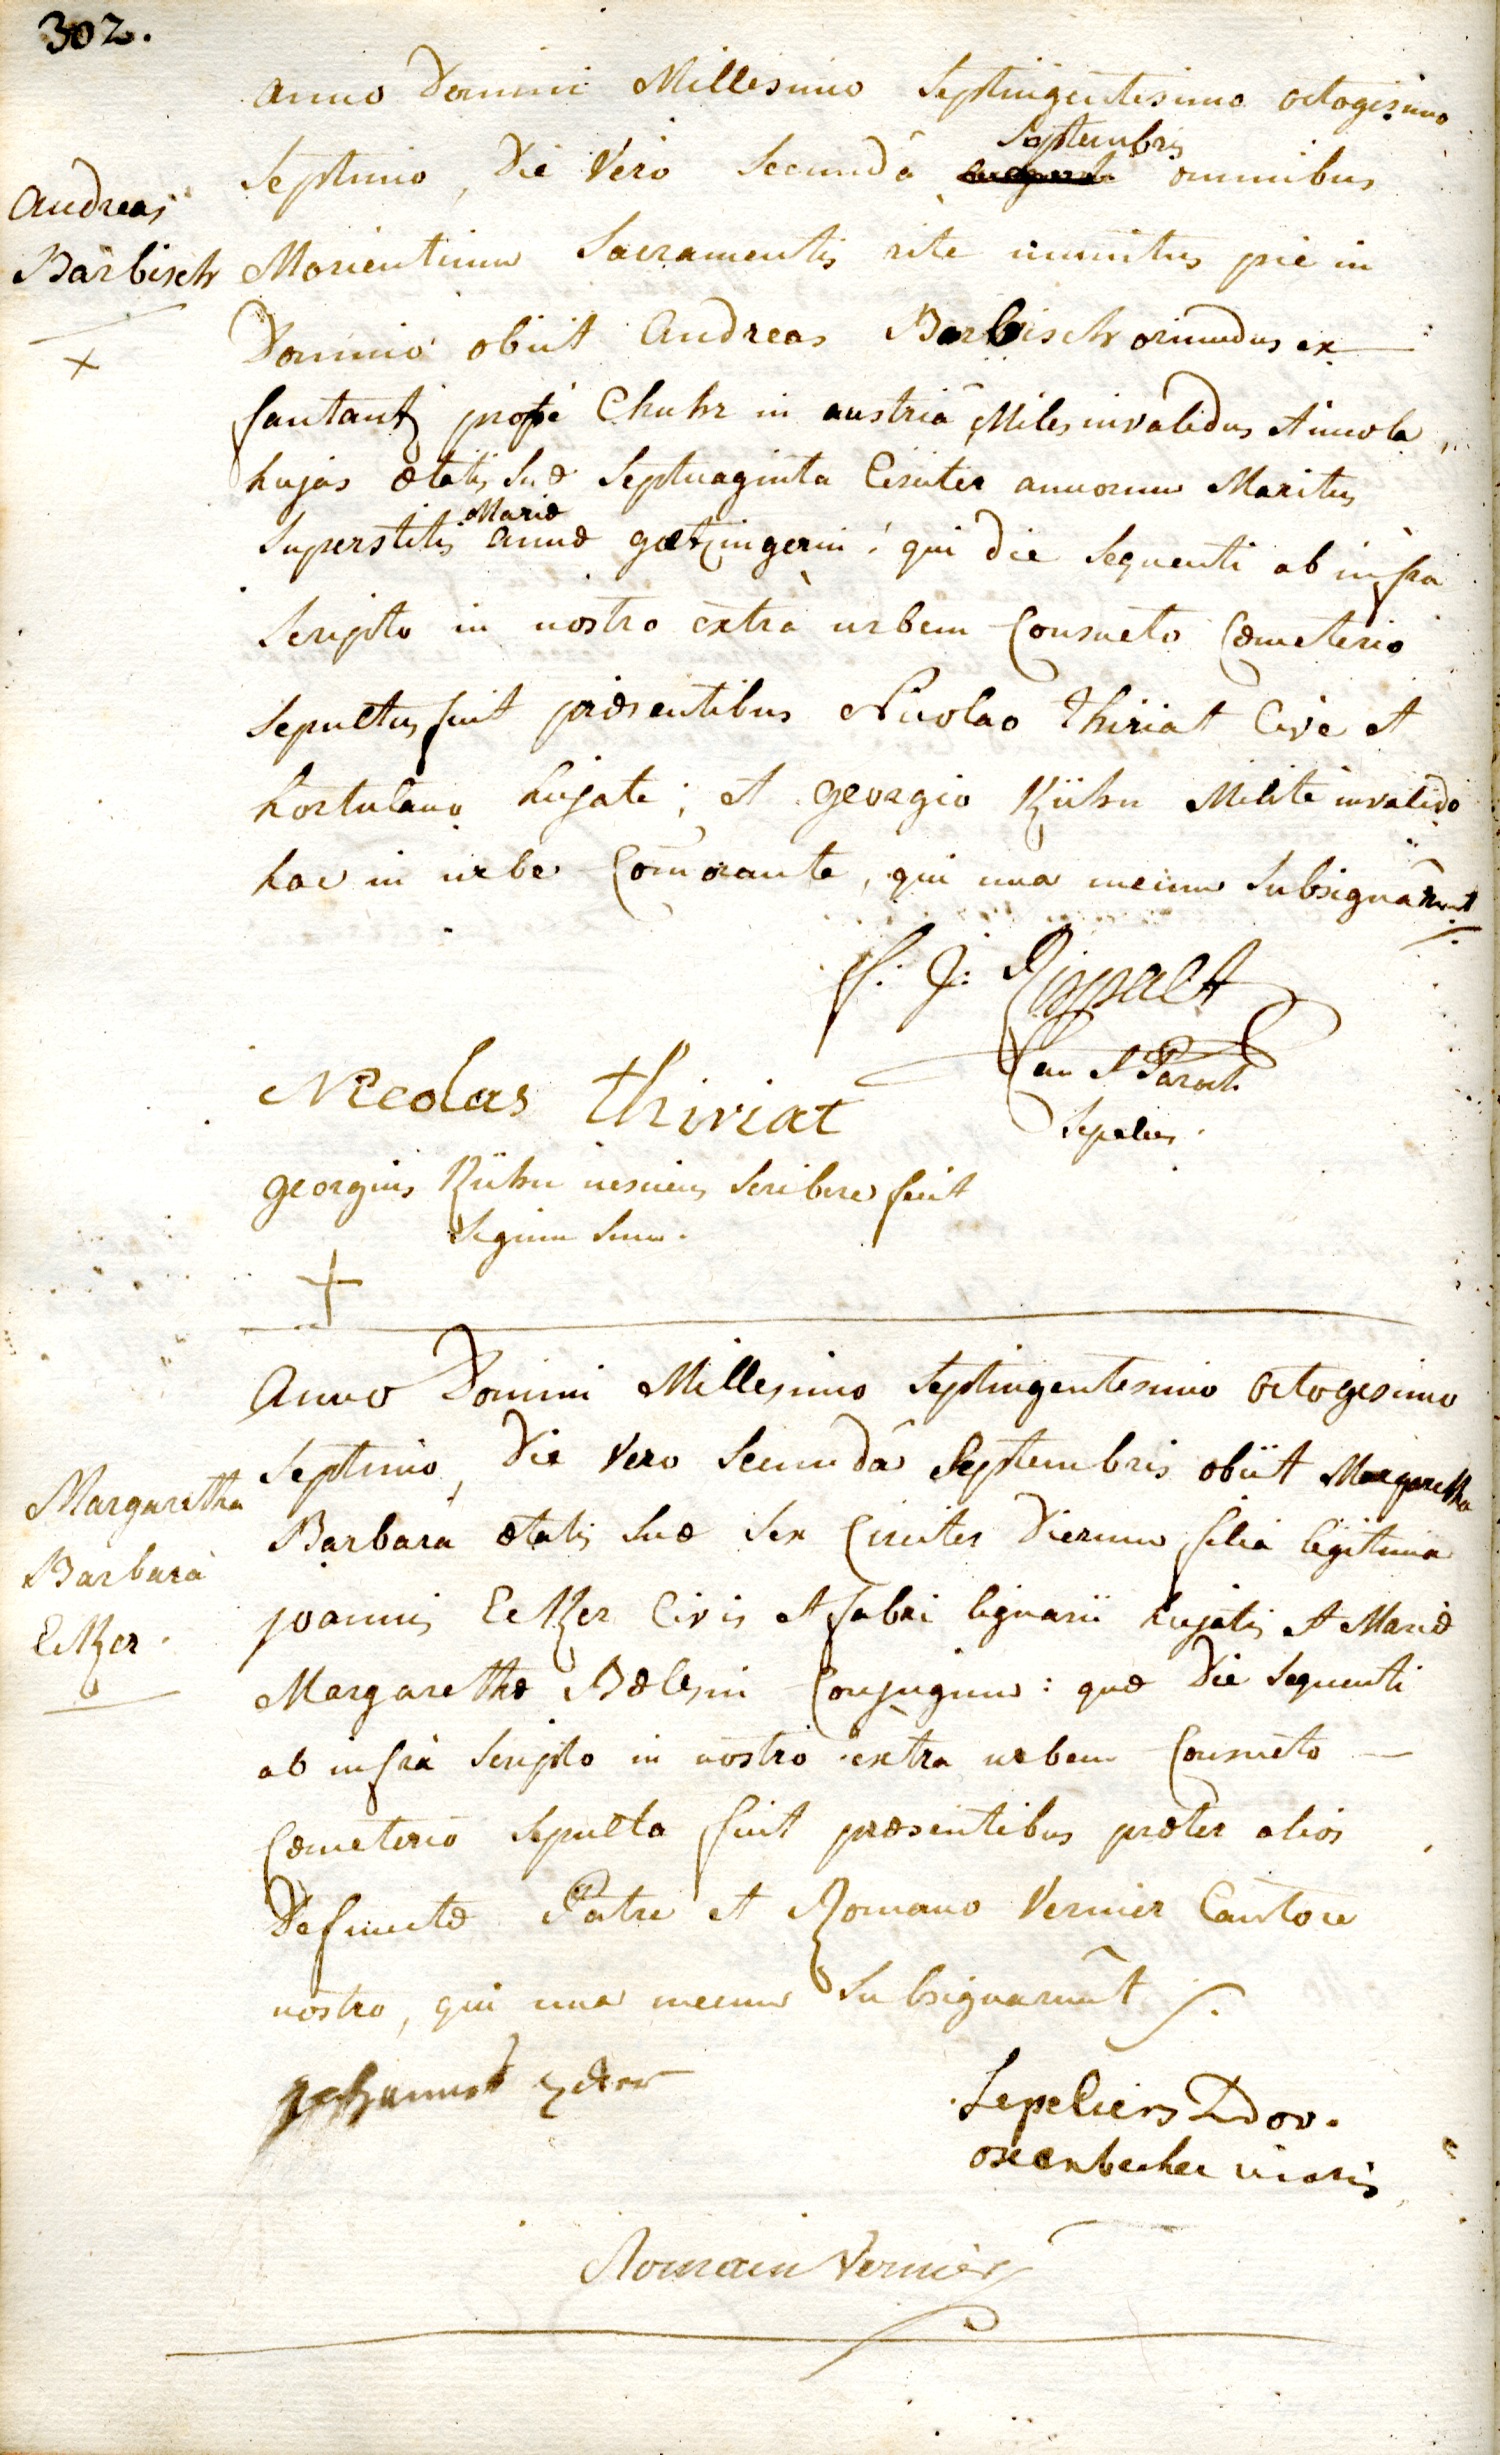 302.
anno Domini Millesimo Septingentesimo octogesimo
Septembris
Septimo, Die Vero Secundâ omnibus
Andreas
Barbisch
Morientium Sacramentis rite munitus pie in
Domino obiit Andreas Barbisch oriundus ex
fantantz propè Chuhr in austriâ Miles invalidus et incola
hujas ætatis suæ Septuaginta Circiter annorum Maritus
Mariæ
Superstitis annæ gœtzingerin: qui die Sequenti ab infra
Scripto in nostro extrà urbem Consueto Cœmeterio
Sepultus fuit præsentibus Nicolao Thiriat Cive et
hortulano hujate; et georgio Kühn Milite invalido
hac in urbe Comorante, qui una mecum Subsignârunt
f. J. Rippelt
Can et Paroch
Sepeliens.
Nicolas thiriat
georgius Kühn nesciens Scribere fecit
Signum Suum.
+
Anno Domini Millesimo Septingentesimo octogesimo
Septimo, Die Vero Secundâ Septembris obiit Margaretha
Margaretha
Barbara
Ecker.
Barbara ætatis suæ sex Circiter Dierum filia legitima
joannis Ecker Civis et fabri lignarii hujatis et Mariæ
Margarethæ Conjugum: quæ Die Sequenti
ab infrà Scripto in nostro extra urbem Consueto
Cœmeterio Sepulta fuit præsentibus præter alios
Defunctæ Patre et Romano Vernier Cantore
nostro, qui una mecum Subsignarunt
johannes
Sepeliens
vicaris
Romain Vernier